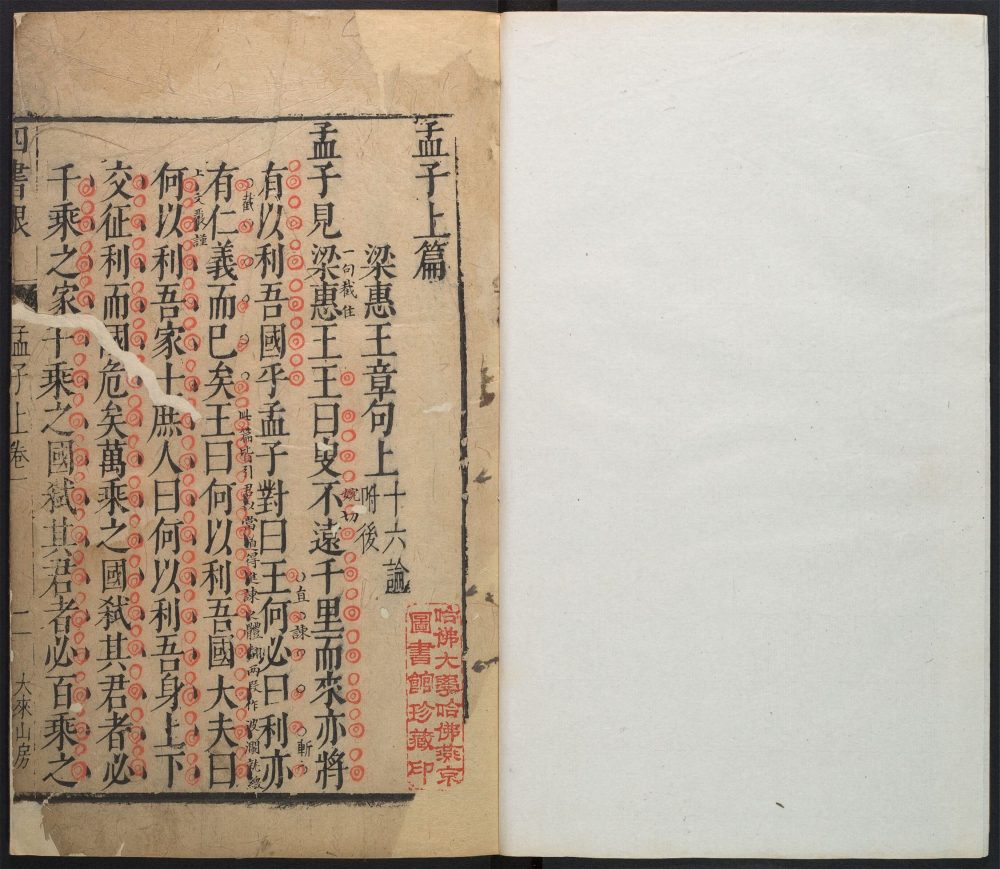 孟子上篇
梁惠王章句上
十六論
附後
孟子見梁惠王王曰叟不遠千里而來亦將
一句截住
婉切
有以利吾國乎孟子對曰王何必曰利亦
直諫
斬
有仁義而已矣王曰何以利吾國大夫曰
截
上文最謹
何以利吾家士庶人曰何以利吾身上下
交征利而國危矣萬乘之國弑其君者必
千乘之家千乘之國弑其君者必百乘之
四書眼
孟子上卷一
一
大來山房
哈佛大學哈佛燕京
圖書館珍藏印